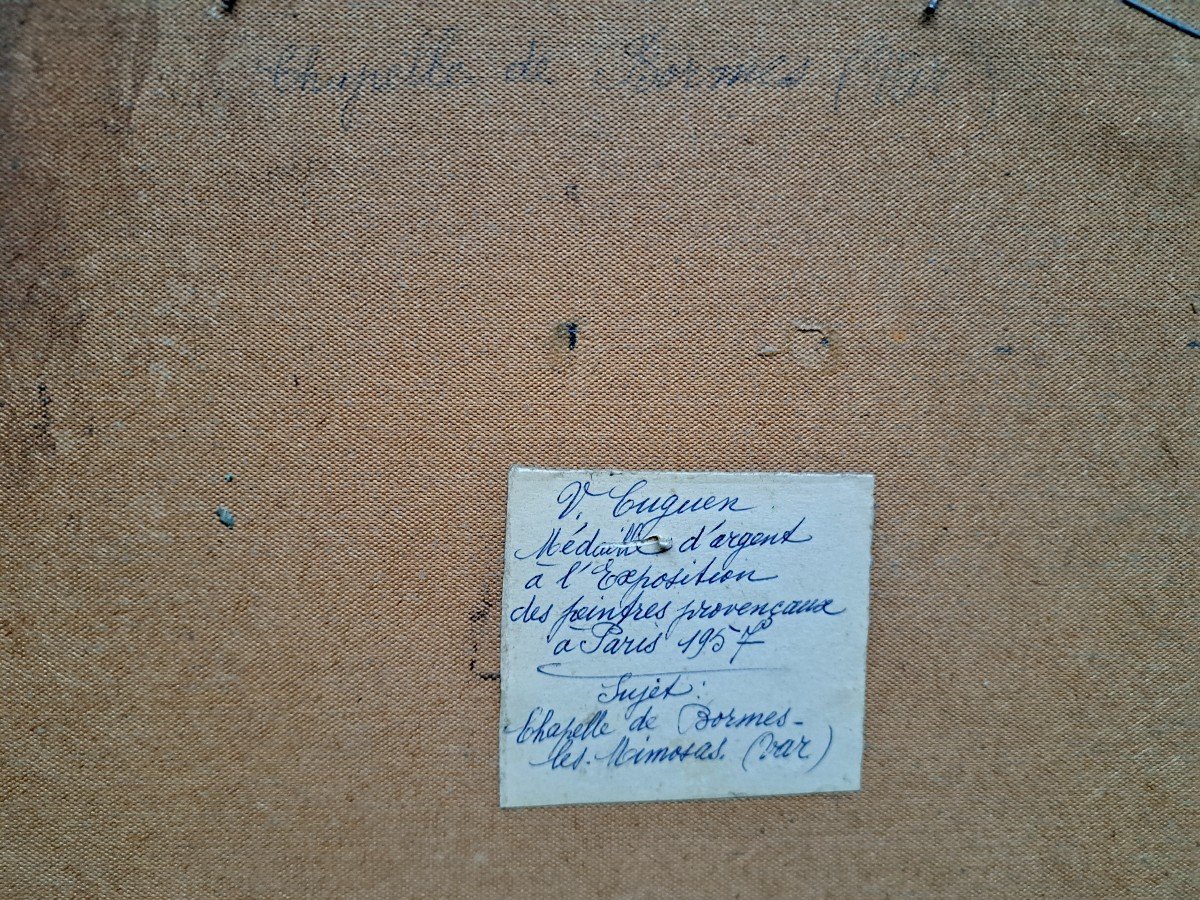 Chapelle de Bormes (Var)
V. Cuguen
Médaille d'argent
à l'Exposition
des peintres provençaux
à Paris 1957
Sujet:
Chapelle de Bormes-
les-Mimosas. (Var)